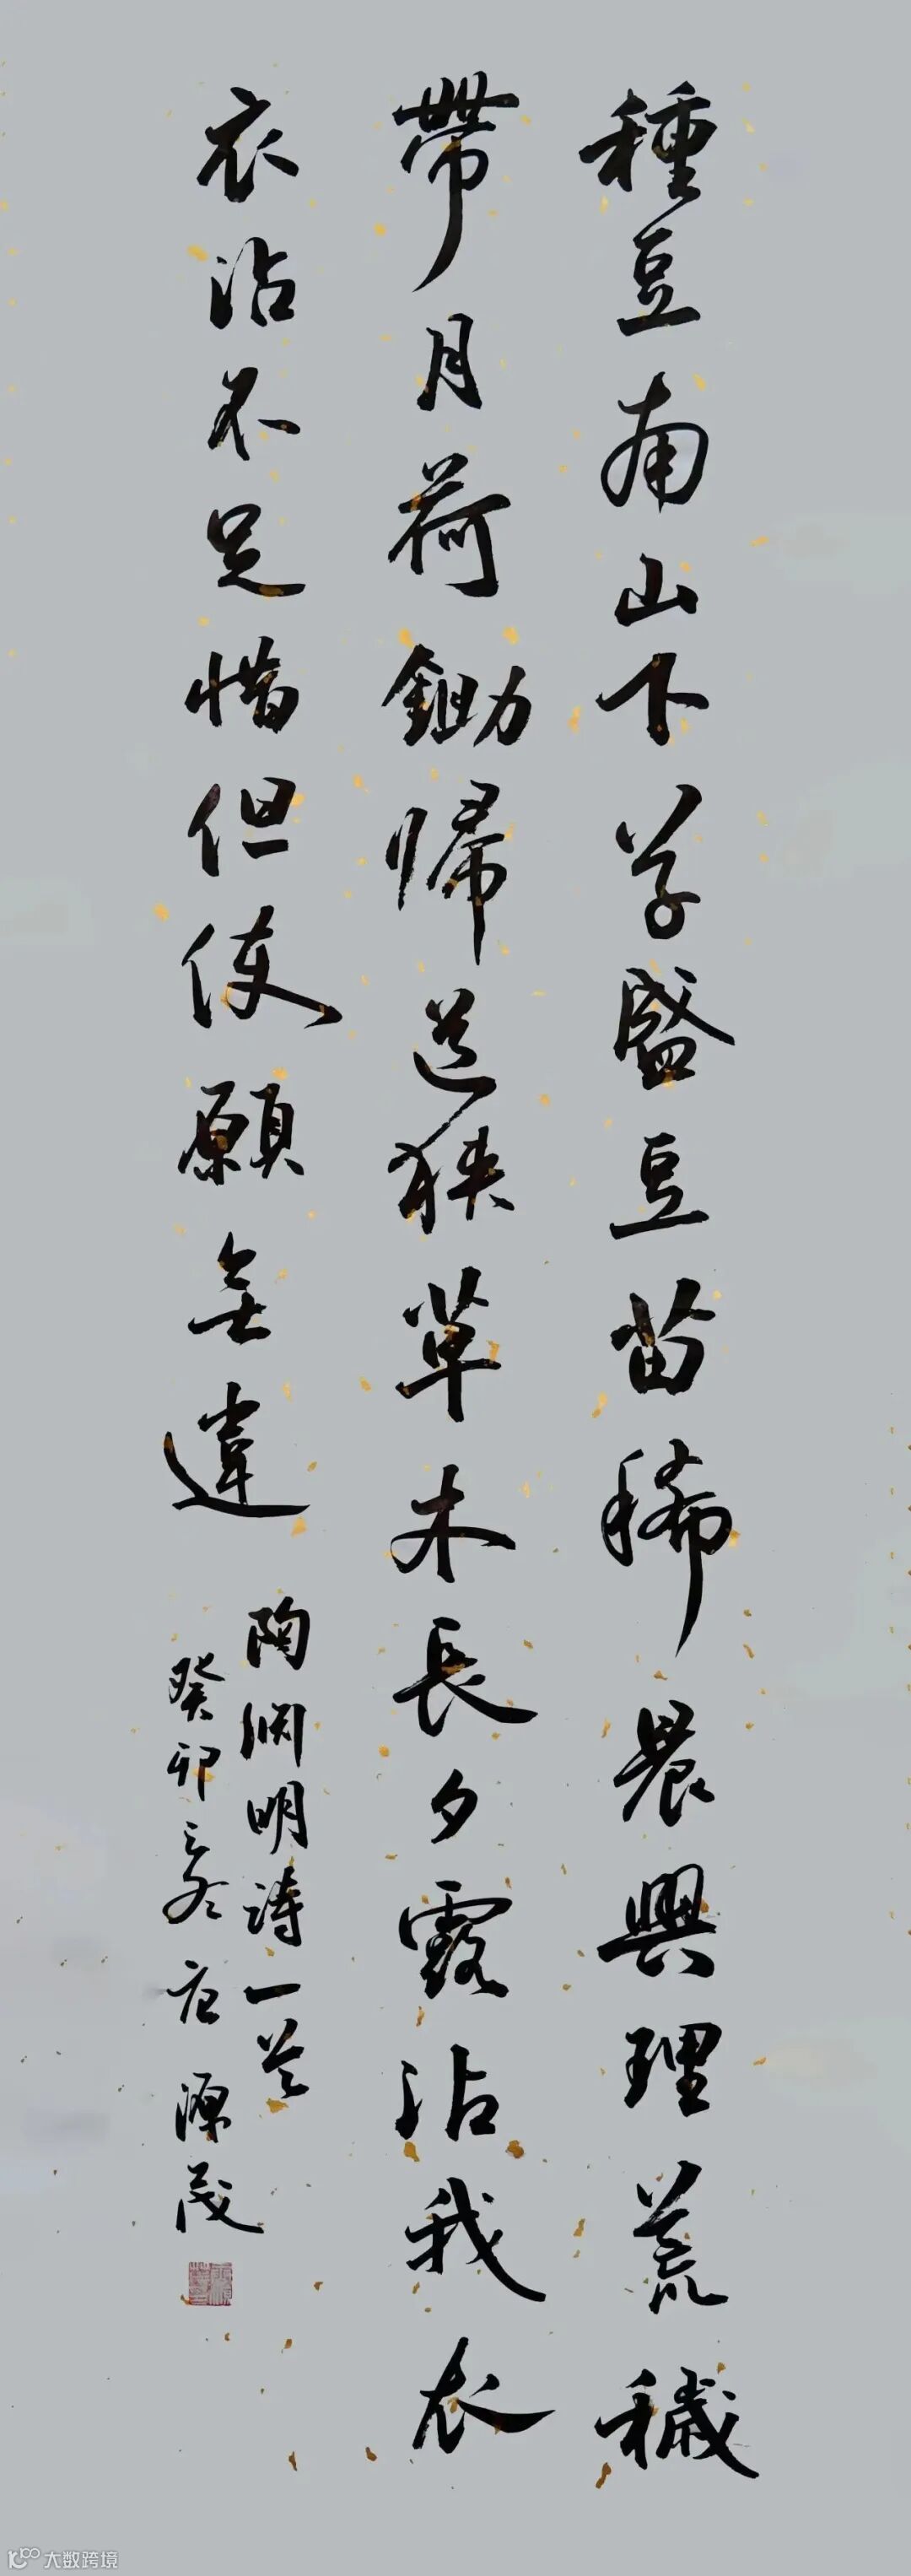 種豆南山下草盛豆苗稀晨興理荒穢
帶月荷鋤歸道狹草木長夕露沾我衣
衣沾不足惜但使願無違
陶淵明詩一首
癸卯冬 源茂
大数跨境